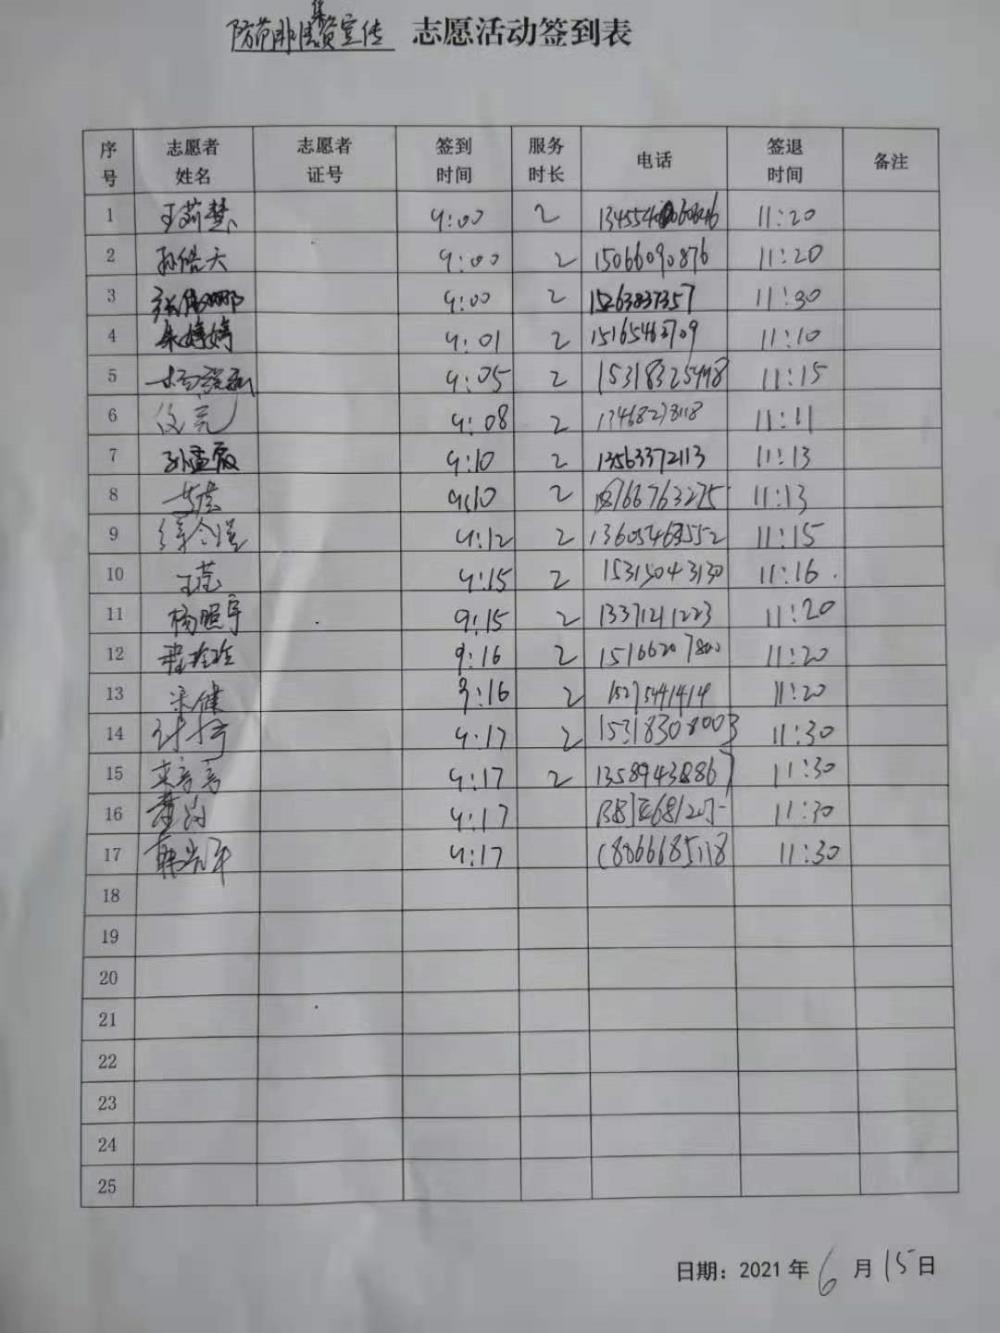 防范非法集资宣传 志愿活动签到表
序号 志愿者姓名 志愿者证号 签到时间 服务时长 电话 签退时间 备注
1 王莉慧 9:00 2 11:20
2 孙皓天 9:00 2 15066090876 11:20
3 9:00 2 15263837357 11:30
4 朱婷婷 9:01 2 15165463709 11:10
5 9:05 2 15318325498 11:15
6 9:08 2 11:11
7 孙孟霞 9:10 2 13563372113 11:13
8 9:10 2 18766763275 11:13
9 9:12 2 11:15
10 王莹 9:15 2 15315043130 11:16
11 杨照宇 9:15 2 13371241223 11:20
12 程玲玲 9:16 2 15166207800 11:20
13 宋健 9:16 2 15275441414 11:20
14 9:17 2 15318308003 11:30
15 9:17 2 13589438867 11:30
16 9:17 11:30
17 9:17 18866685118 11:30
18
19
20
21
22
23
24
25
日期：2021 年 6 月 15 日